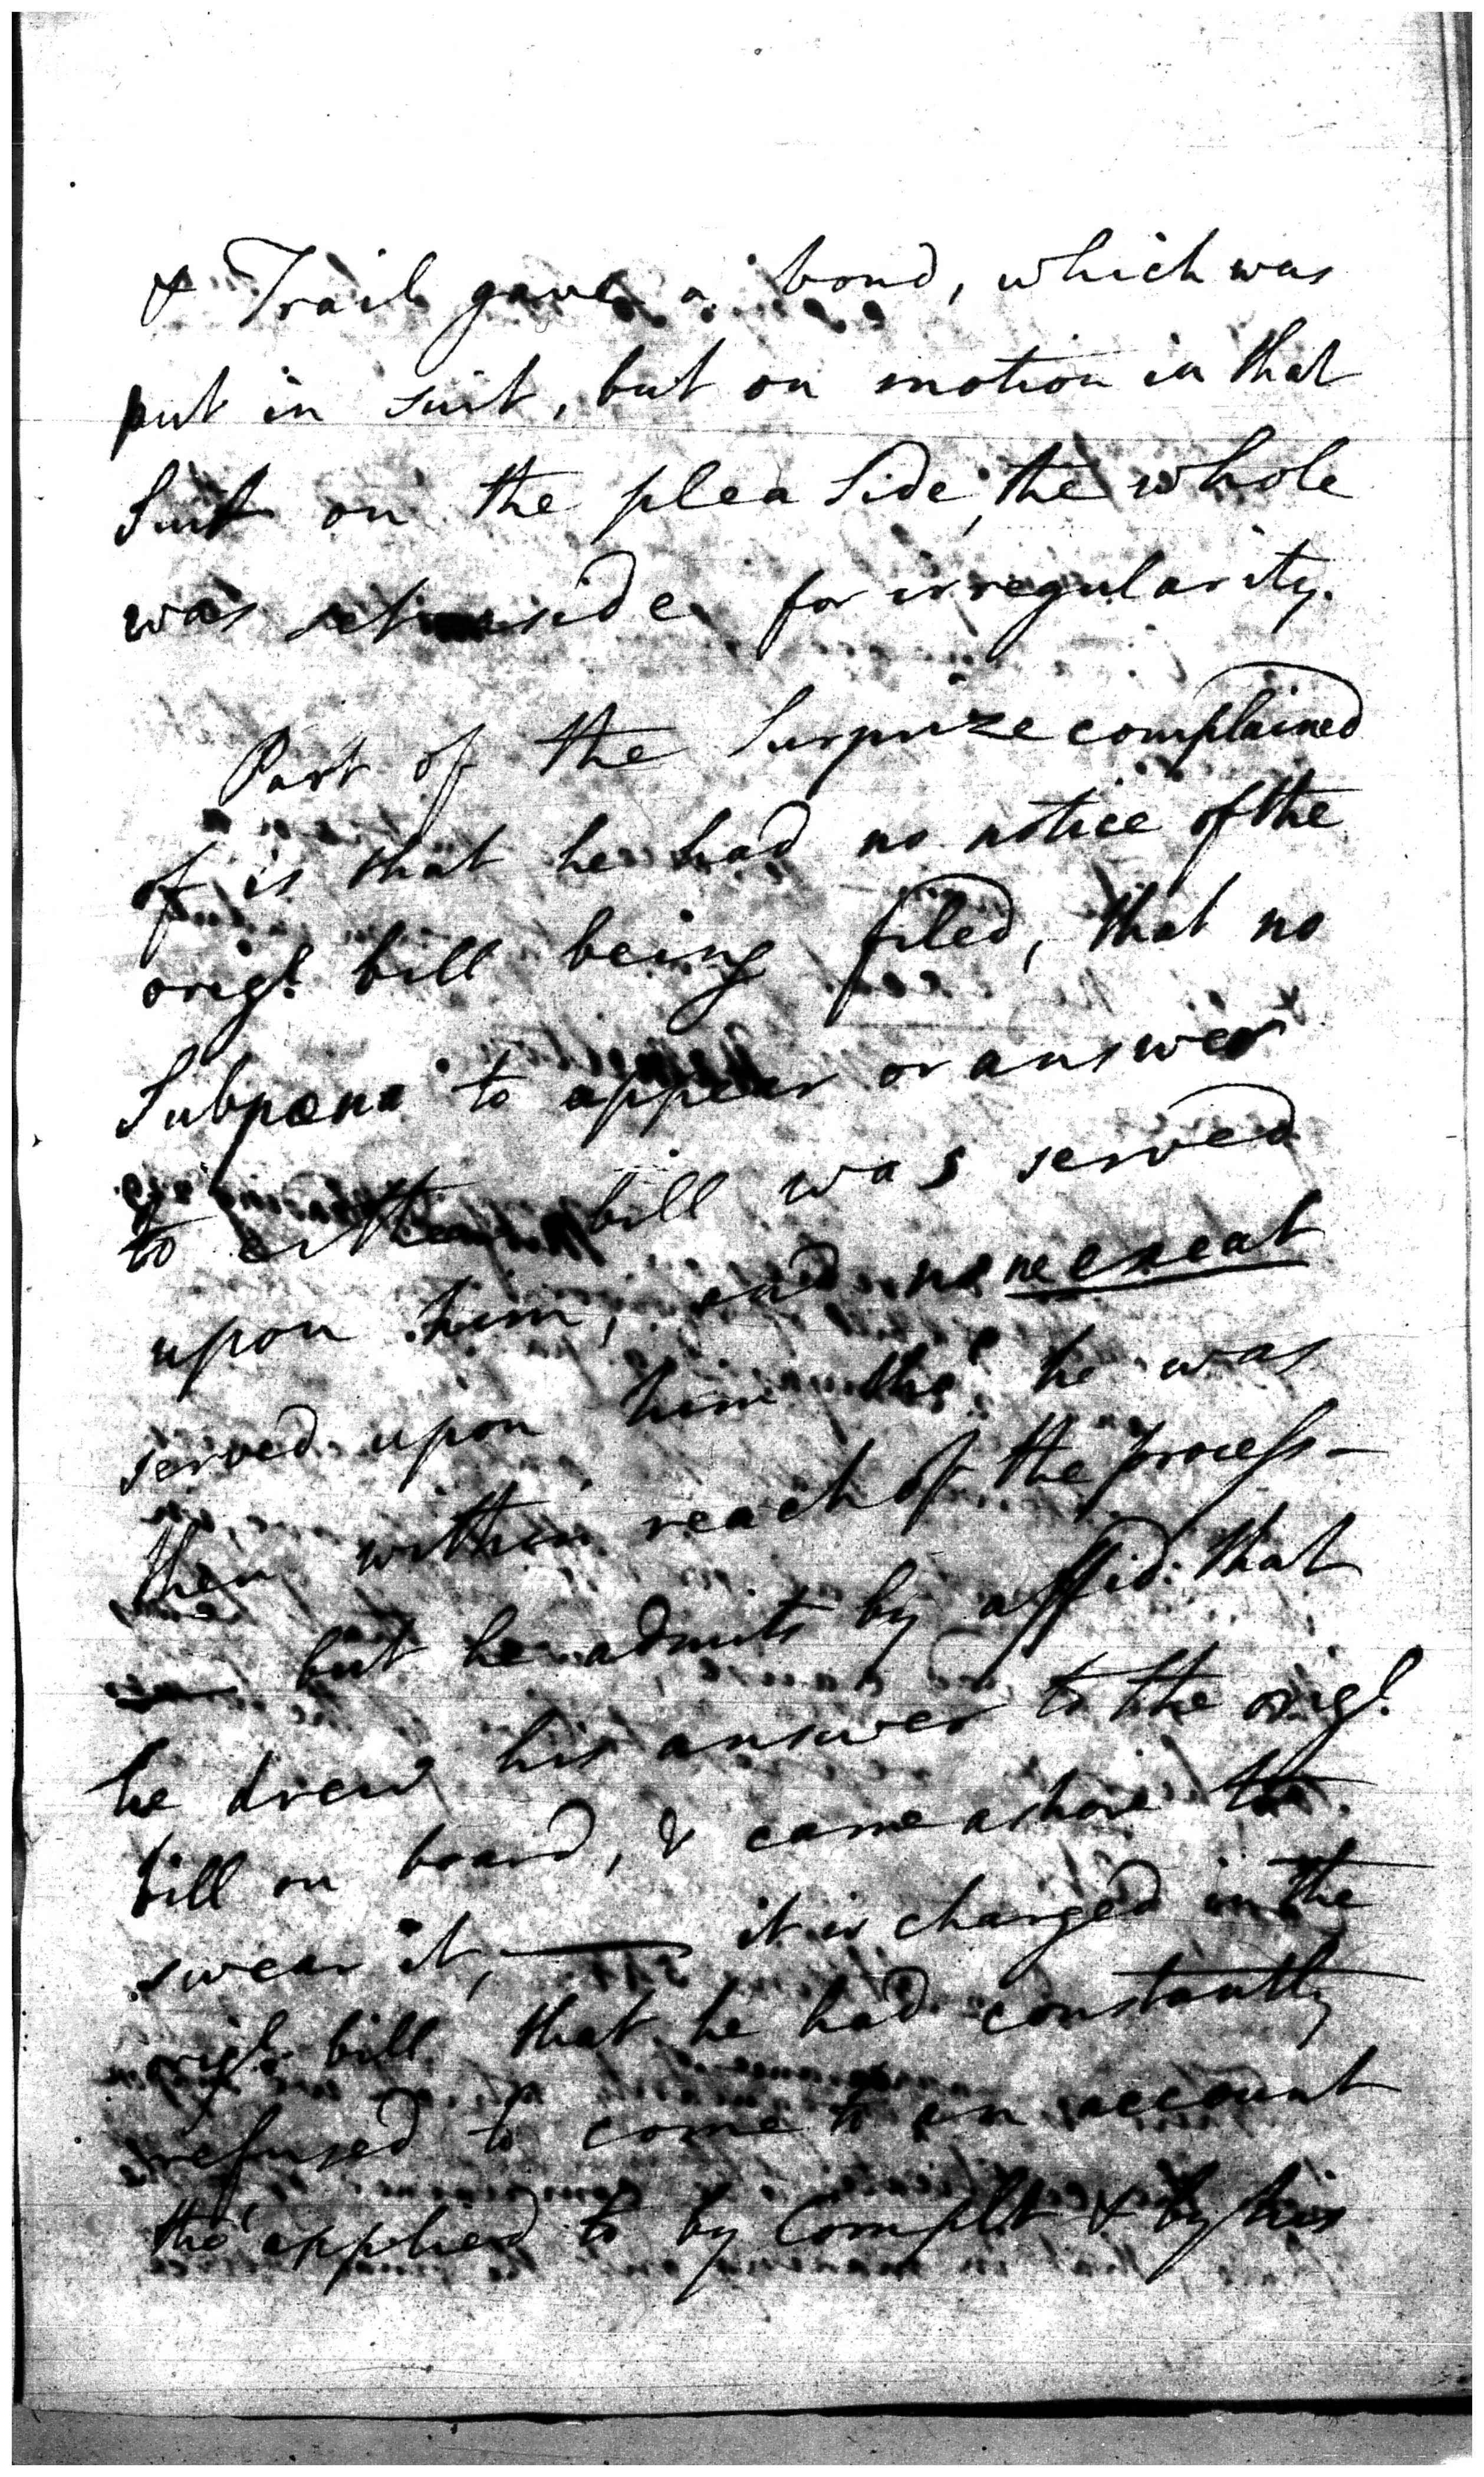 & Trail gave a bond, which was
put in suit, but on motion in that
Suit on the plea Side, the whole
was set aside for irregularity.
Part of the Surprize complained
of is that he had no notice of the
origl. bill being filed, that no
Subpœna to appear or answer
to either bill was served
upon him, and no ne exeat
served upon him tho' he was
then within reach of the process—
but he admits by affid: that
he drew his answer to the origl.
bill on board, & came ashore to
swear it, — it is charged in the
origl. bill that he had constantly
refused to come to an account
tho' applied to by Complt & by his